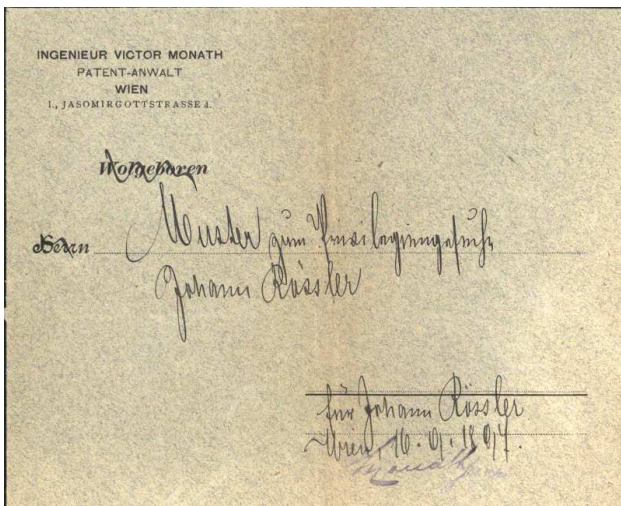 INGENIEUR VICTOR MONATH
PATENT-ANWALT
WIEN
I., JASOMIRGOTTSTRASSE 4.
Wolgeboren
Herrn Muster zum Privilegiengesuche
Johann Rössler
für Johann Rössler
Wien, 16.9.1897.
Monath